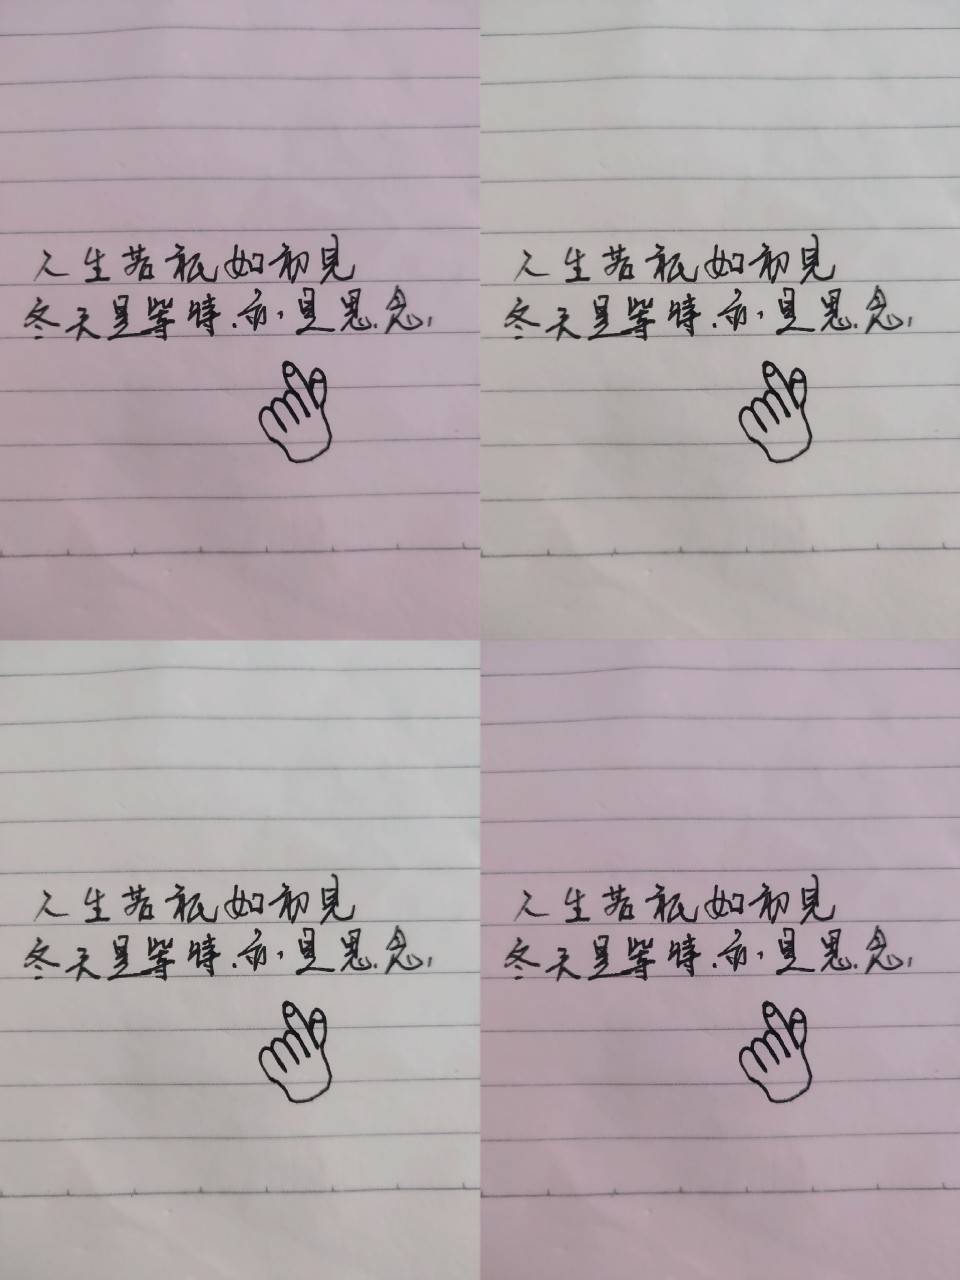 人生若祇如初見
冬天是等待.亦,是思.念,
人生若祇如初見
冬天是等待.亦,是思.念,
人生若祇如初見
冬天是等待.亦,是思.念,
人生若祇如初見
冬天是等待.亦,是思.念,